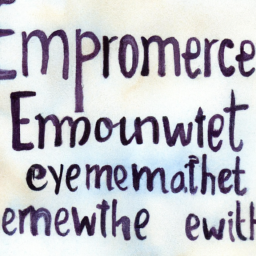 Empromerce
Emnounwtet
eyememathet
emewthe ewith